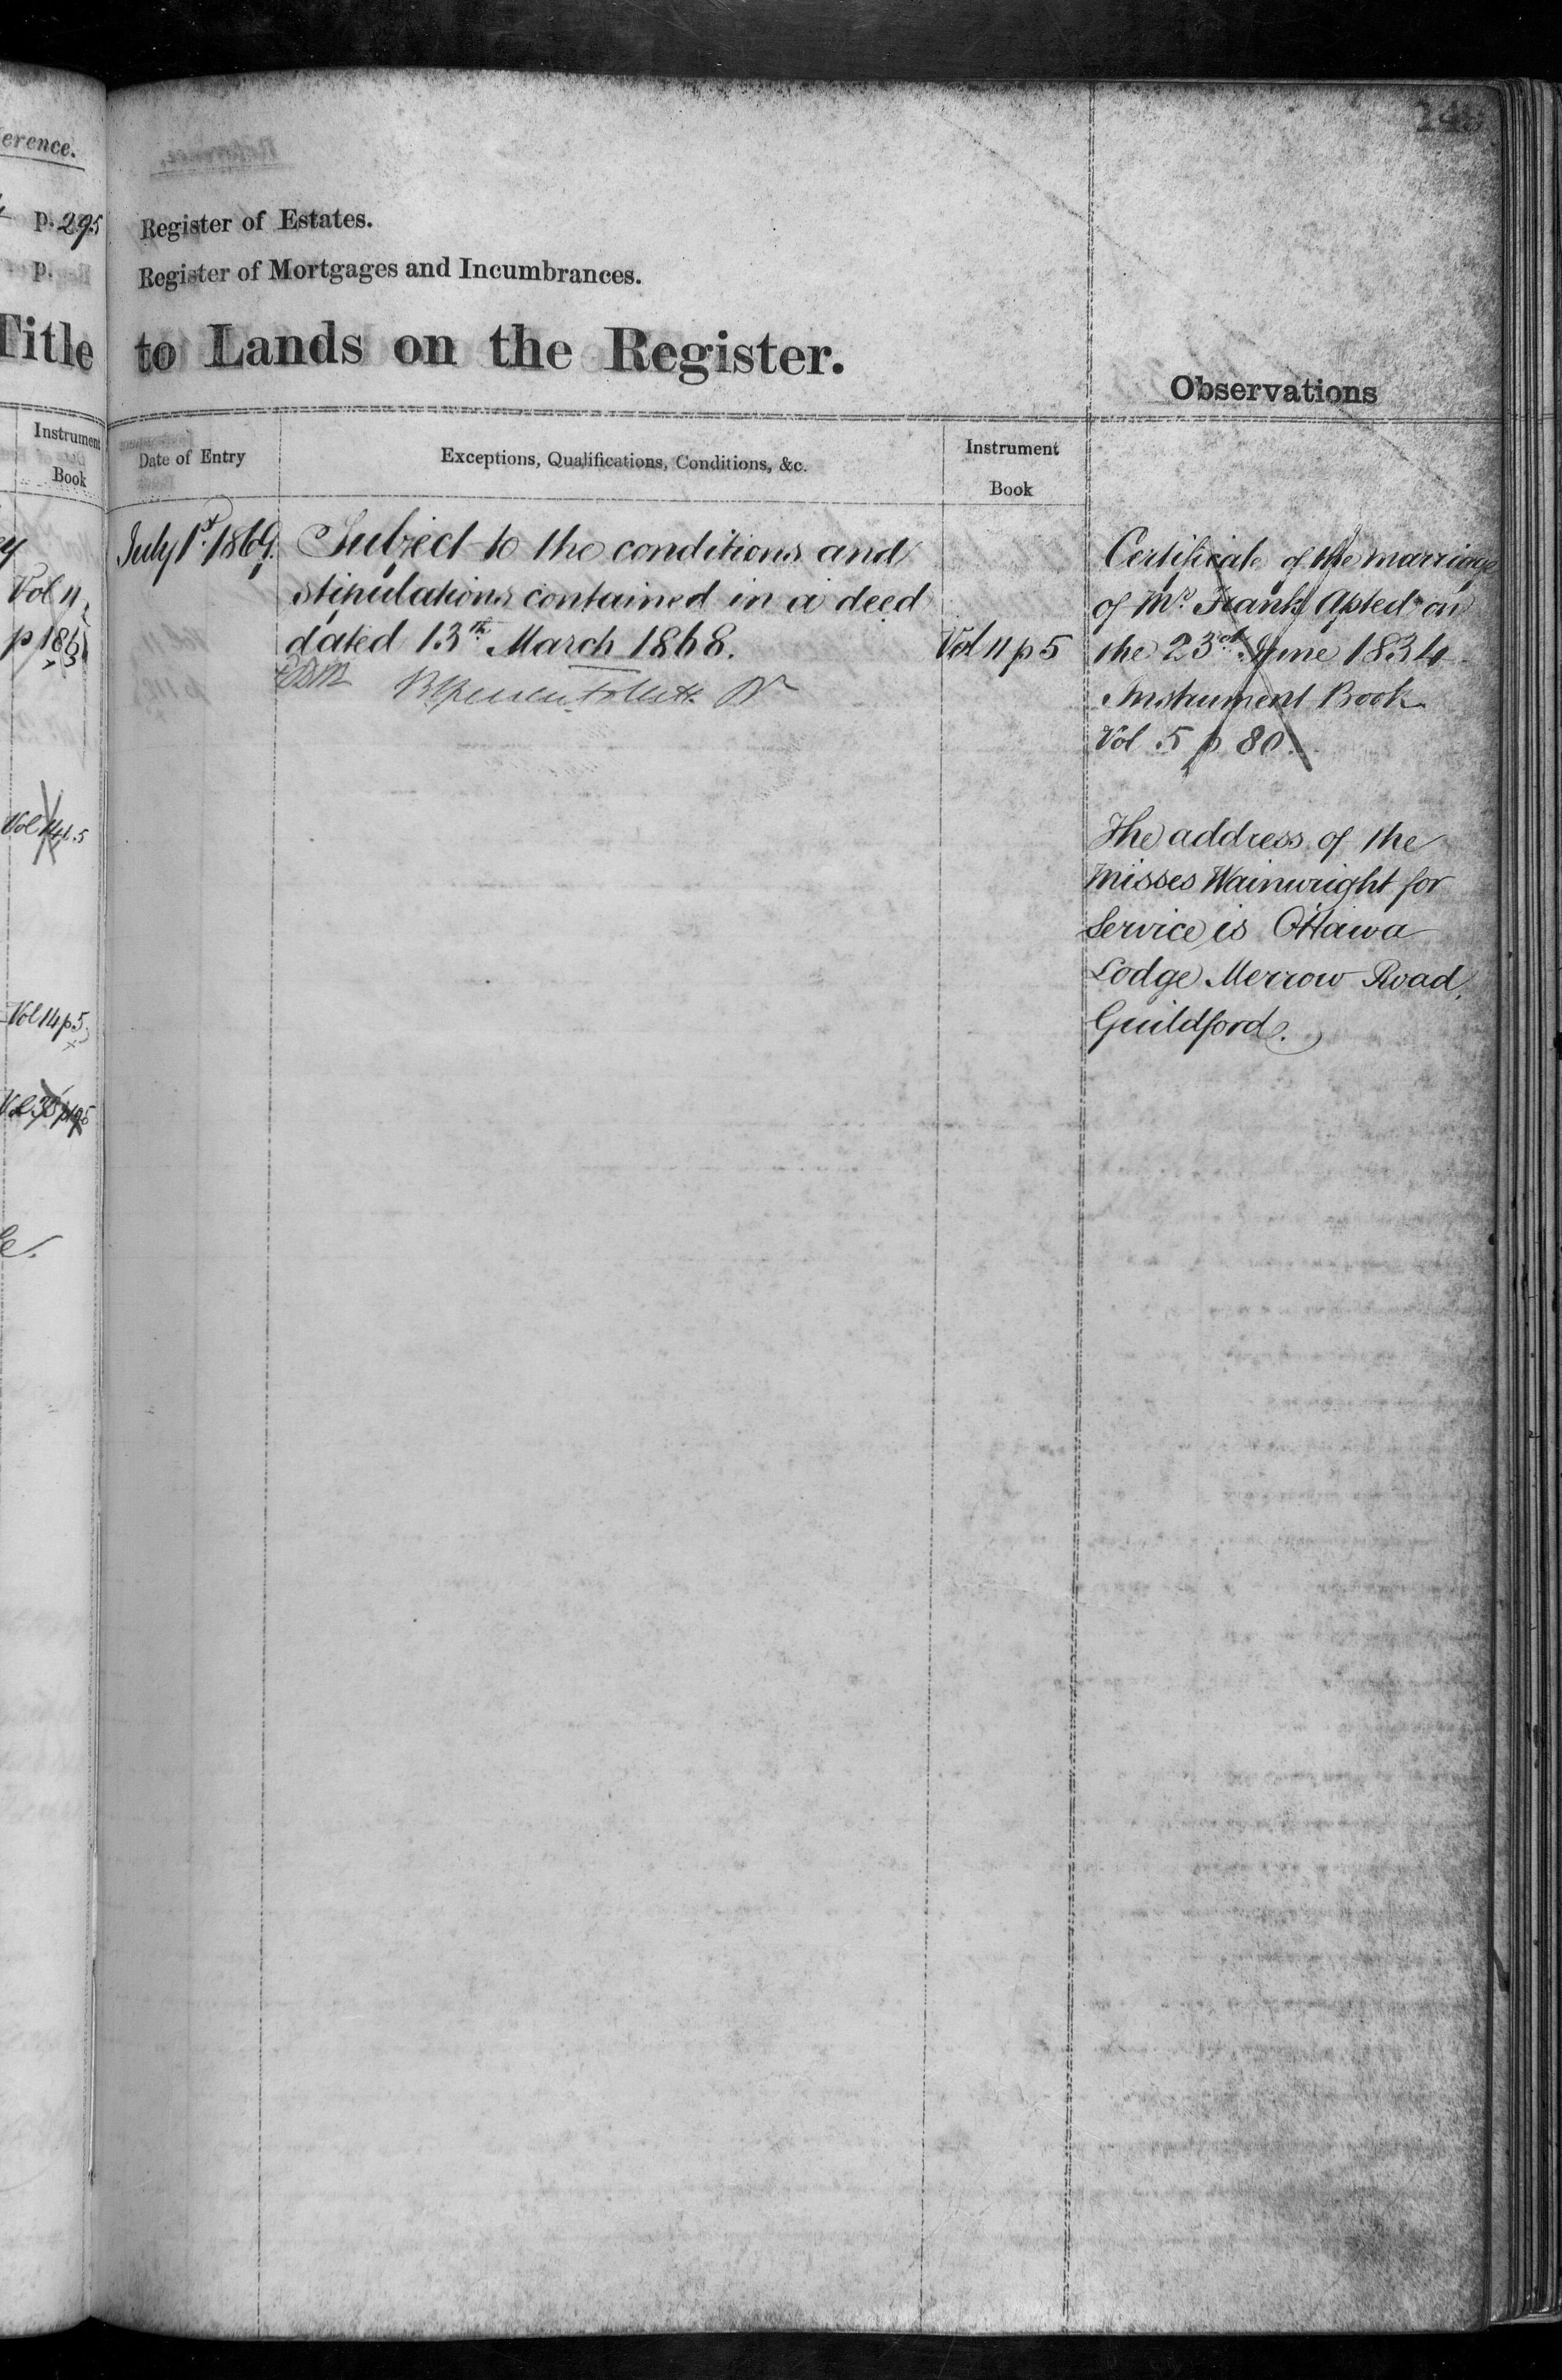 erence.
p. 295
p.
Title
Instrument
Book
Vol 11
p 186
Vol 14 p. 5
Vol 14 p 5
Vol 35 p 195
148
Register of Estates.
Register of Mortgages and Incumbrances.
to Lands on the Register.
Observations
Date of Entry
Exceptions, Qualifications, Conditions, &c.
Instrument
Book
July 1st 1869. Subject to the conditions and
stipulations contained in a deed
dated 13th March 1868. Vol 11 p 5
Certificate of the marriage
of Mr Frank Apted on
the 23rd June 1834
Instrument Book
Vol 5 p 80.
The address of the
Misses Wainwright for
Service is Ottawa
Lodge Merrow Road,
Guildford.